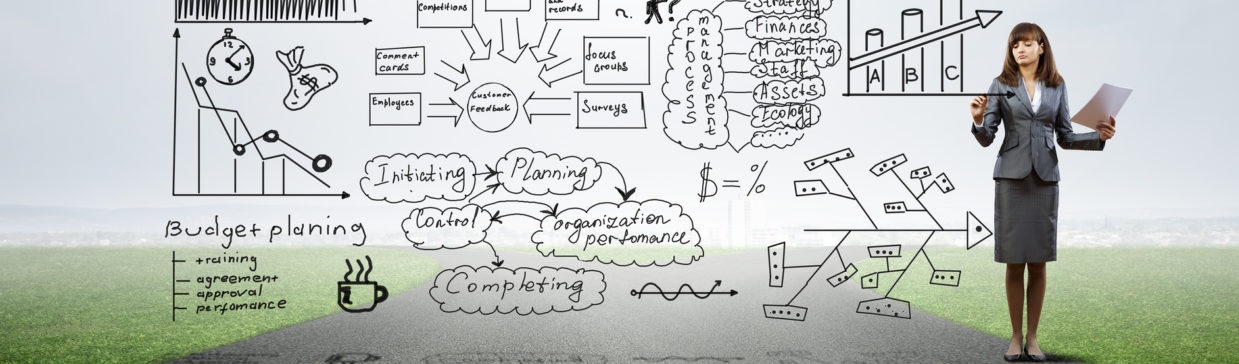 Competitions
and
records
Comment
cards
Employees
Customer
Feedback
focus
Groups
Surveys
process
management
Strategy
Finances
Marketing
Staff
Assets
Ecology
.....
A B C
12
3
6
9
$
Initiating
Planning
Control
organization
perfomance
Completing
$ = %
Budget planing
training
agreement
approval
perfomance